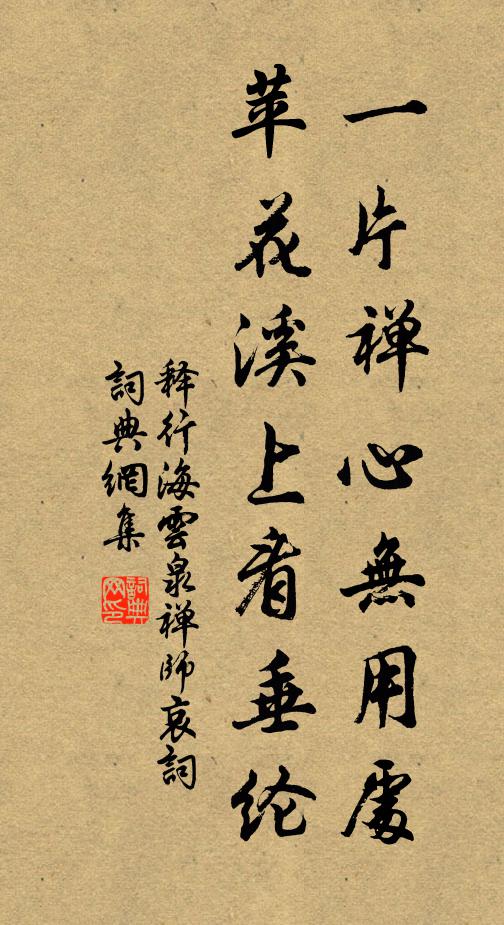 一片禅心無用處
苹花溪上看垂纶
释行海雲泉禅師哀詞
詞典網集
詞典网印